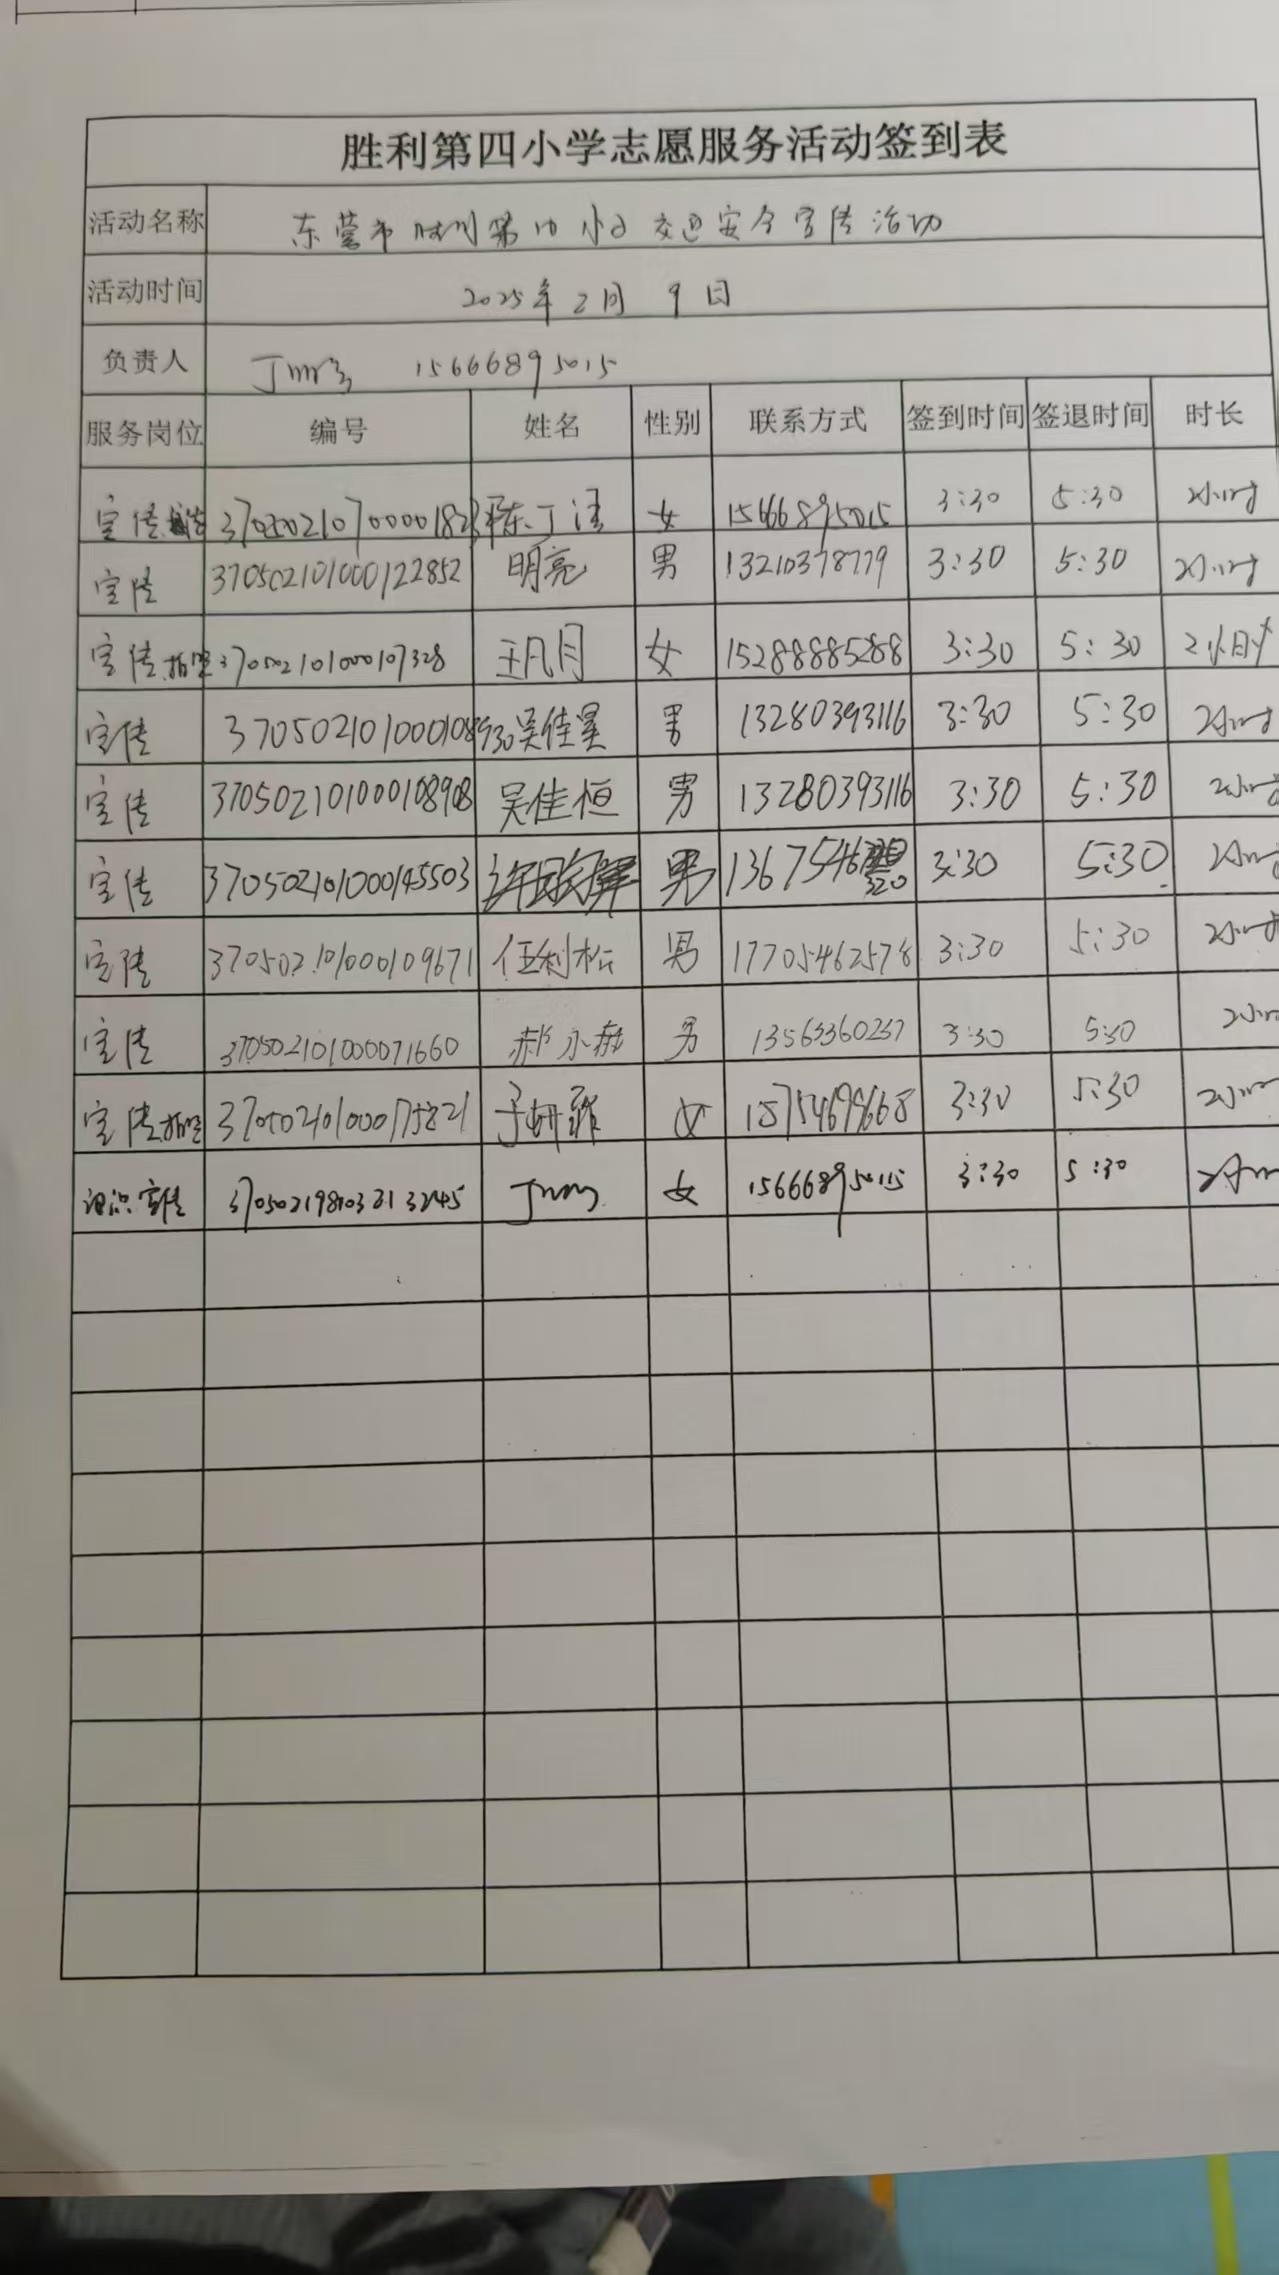 胜利第四小学志愿服务活动签到表
活动名称 东营市胜利第四小学交通安全宣传活动
活动时间 2025年2月9日
负责人 15666895015
服务岗位 编号 姓名 性别 联系方式 签到时间 签退时间 时长
宣传 女 15666895015 3:30 5:30 2小时
宣传 370502101000122852 明亮 男 13210378779 3:30 5:30 2小时
宣传 370502101000107328 王凡月 女 15288885288 3:30 5:30 2小时
宣传 370502101000108930 吴佳昊 男 13280393116 3:30 5:30 2小时
宣传 370502101000108908 吴佳恒 男 13280393116 3:30 5:30 2小时
宣传 370502101000145503 男 3:30 5:30 2小时
宣传 370502101000109671 伍利松 男 17705462578 3:30 5:30 2小时
宣传 370502101000071660 男 3:30 5:30 2小时
宣传 女 3:30 5:30 2小时
知识宣传 女 15666895015 3:30 5:30 2小时